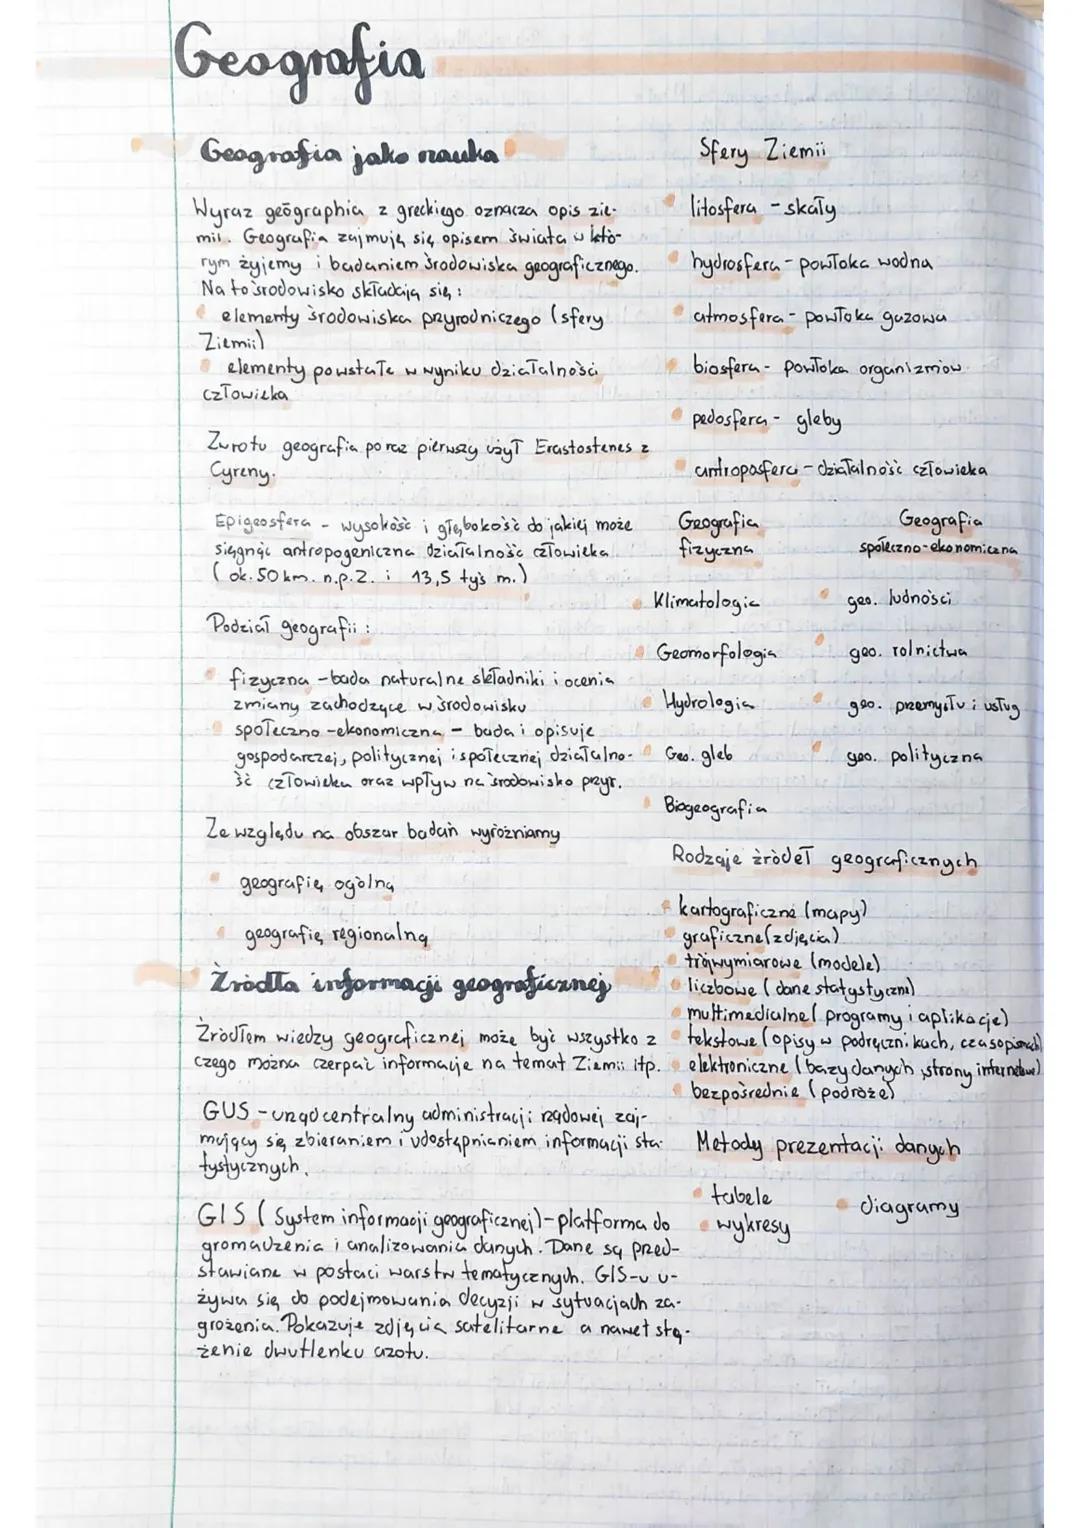 Geografia
Geografia jako nauka
Wyraz geōgraphia z greckiego oznacza opis zie-
mii. Geografia zajmują się opisem świata w któ-
rym żyjemy i badaniem środowiska geograficznego.
Na to środowisko składają się:
elementy środowiska przyrodniczego (sfery
Ziemii)
elementy powstałe w wyniku działalności
człowieka
Zwrotu geografia po raz pierwszy użył Erastostenes z
Cyreny.
Epigeosfera - wysokość i głębokość do jakiej może
sięgnąć antropogeniczna działalność człowieka
(ok. 50 km. n.p.Z. i 13,5 tyś m.)
Podział geografii:
fizyczna - bada naturalne składniki i ocenia
zmiany zachodzące w środowisku
społeczno-ekonomiczna - bada i opisuje
gospodarczej, politycznej i społecznej działalno-
ść człowieka oraz wpływ na środowisko przyr.
Ze względu na obszar badań wyróżniamy
geografię ogólną
geografię regionalną
Źródła informacji geograficznej
Źródłem wiedzy geograficznej może być wszystko z
czego można czerpać informacje na temat Ziemii itp.
GUS - urząd centralny administracji rządowej zaj-
mujący się zbieraniem i udostępnianiem informacji sta-
tystycznych.
GIS (System informacji geograficznej) - platforma do
gromadzenia i analizowania danych. Dane są przed-
stawiane w postaci warstw tematycznych. GIS-u u-
żywa się do podejmowania decyzji w sytuacjach za-
grożenia. Pokazuje zdjęcia satelitarne a nawet stę-
żenie dwutlenku azotu.
Sfery Ziemii
litosfera - skały
hydrosfera - powłoka wodna
atmosfera - powłoka gazowa
biosfera - powłoka organizmów
pedosfera - gleby
antroposfera - działalność człowieka
Geografia
fizyczna
Klimatologia
Geomorfologia
Hydrologia
Geo. gleb
Biogeografia
Geografia
społeczno-ekonomiczna
geo. ludności
geo. rolnictwa
geo. przemysłu i usług
geo. polityczna
Rodzaje źródeł geograficznych
kartograficzne (mapy)
graficzne (zdjęcia)
trójwymiarowe (modele)
liczbowe (dane statystyczne)
multimedialne (programy i aplikacje)
tekstowe (opisy w podręcznikach, czasopismach)
elektroniczne (bazy danych, strony internetowe)
bezpośrednie (podróże)
Metody prezentacji danych
tabele
wykresy
diagramy